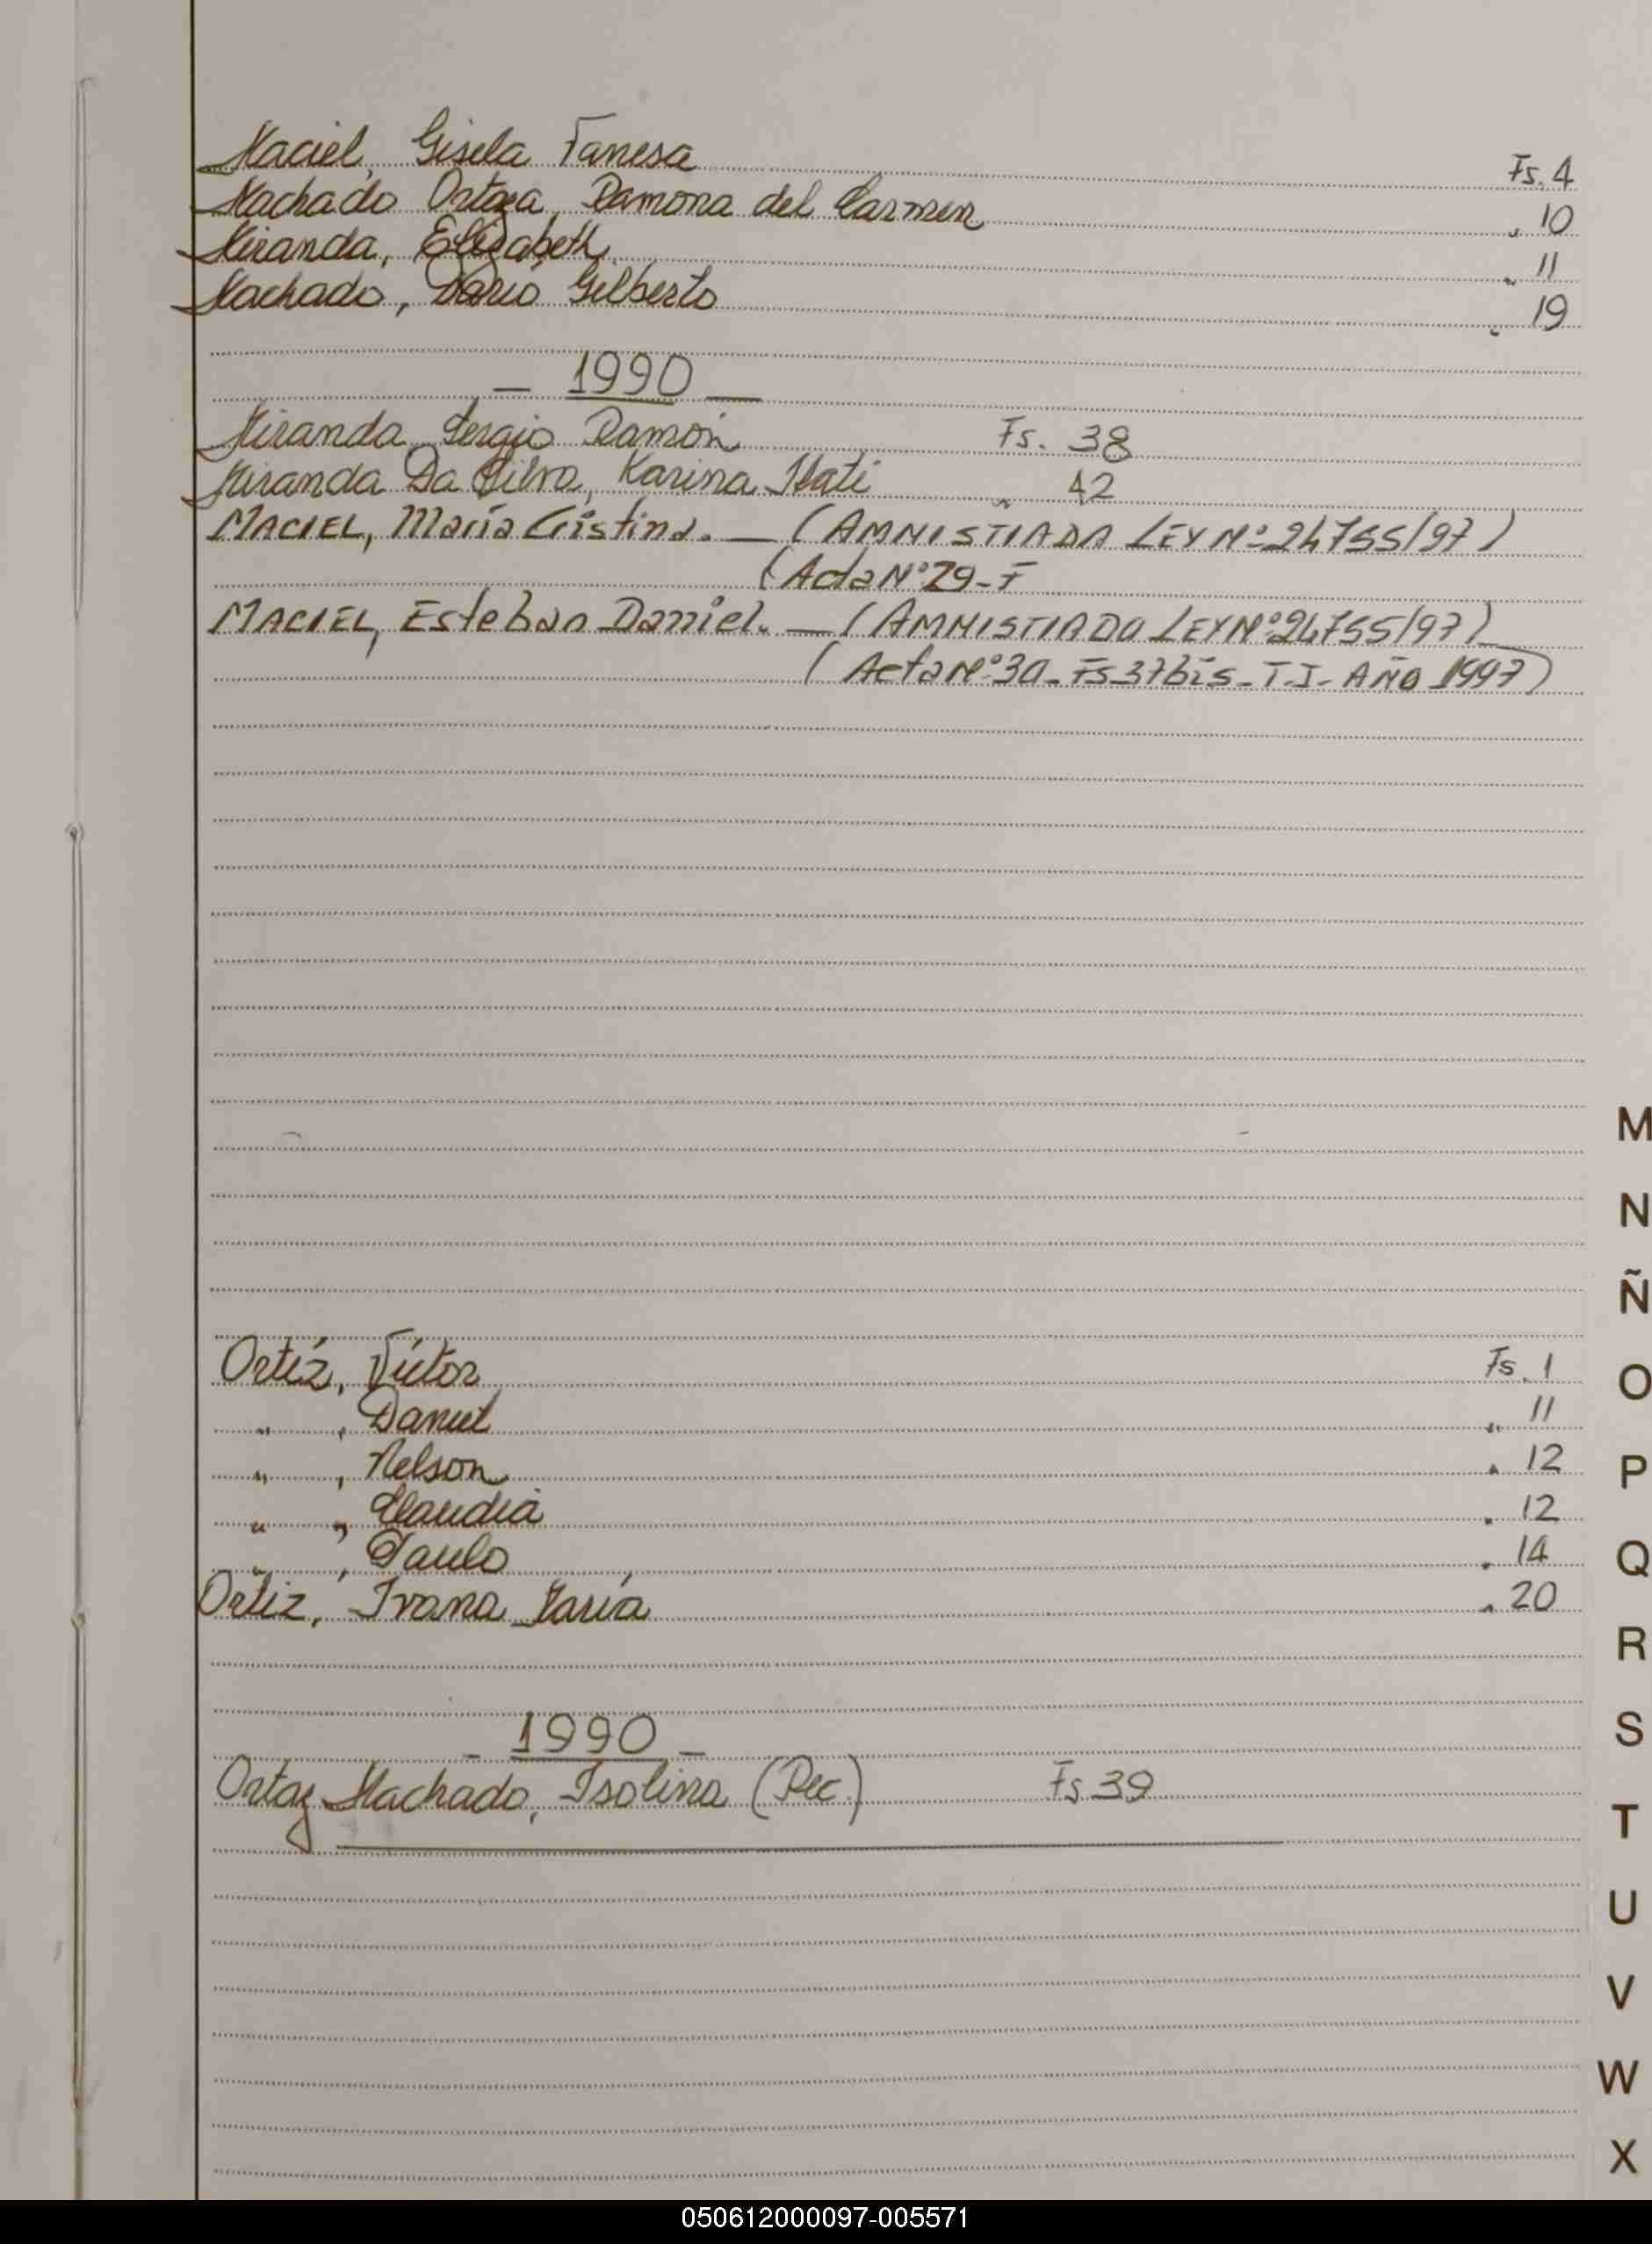 Maciel, Gisela Vanesa Fs. 4
Machado Ortaza, Ramona del Carmen " 10
Miranda, Elizabeth " 11
Machado, Dario Gilberto " 19
— 1990 —
Miranda, Sergio Ramón Fs. 38
Miranda Da Silva, Karina Itati " 42
MACIEL, María Cristina. — (AMNISTIADA LEY Nº 24755/97)
(Acta Nº 29 - F
MACIEL, Esteban Daniel. — (AMNISTIADO LEY Nº 24755/97)
(Acta Nº 30 - Fs 37 bis - T.I - AÑO 1997)
M
N
Ñ
Ortíz, Víctor Fs. 1
O
" , Daniel " 11
" , Nelson " 12
P
" , Claudia " 12
" , Paulo " 14
Q
Ortiz, Ivana María " 20
R
- 1990 -
S
Ortaz Machado, Isolina (Rec.) Fs 39
T
U
V
W
X
050612000097-005571